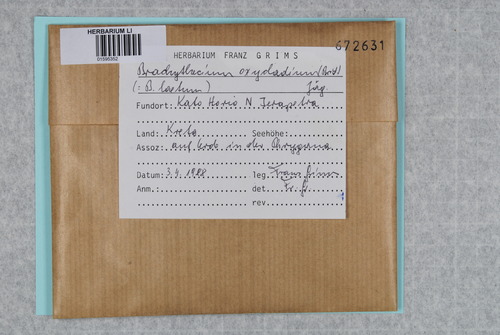 HERBARIUM LI
01595352
672631
HERBARIUM FRANZ GRIMS
Brachythecium oxycladium (Brid)
(= B. laetum) Jäg.
Fundort: Kato Horio N Ierapetra
Land: Kreta Seehöhe:
Assoz: auf Erde in der Phrygana
Datum: 3.4.1988 leg. Franz Grims
Anm.: det Fr. Gr.
rev.